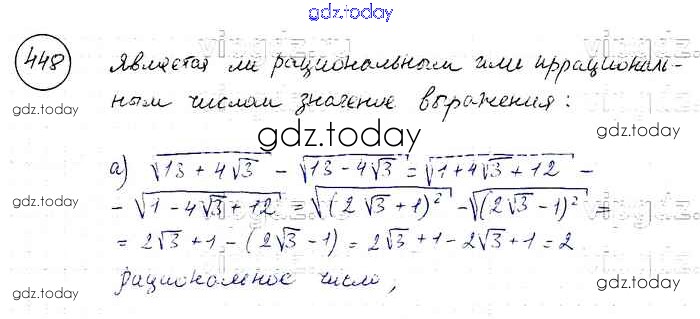 gdz.today
448 Является ли рациональным или иррациональ-
ным числом значение выражения:
gdz.today
gdz.today
gdz.today
а) √13 + 4√3 - √13 - 4√3 = √1 + 4√3 + 12 -
- √1 - 4√3 + 12 = √(2√3 + 1)² - √(2√3 - 1)² =
= 2√3 + 1 - (2√3 - 1) = 2√3 + 1 - 2√3 + 1 = 2
gdz.today
gdz.today
рациональное число,
gdz.today
gdz.today
gdz.today